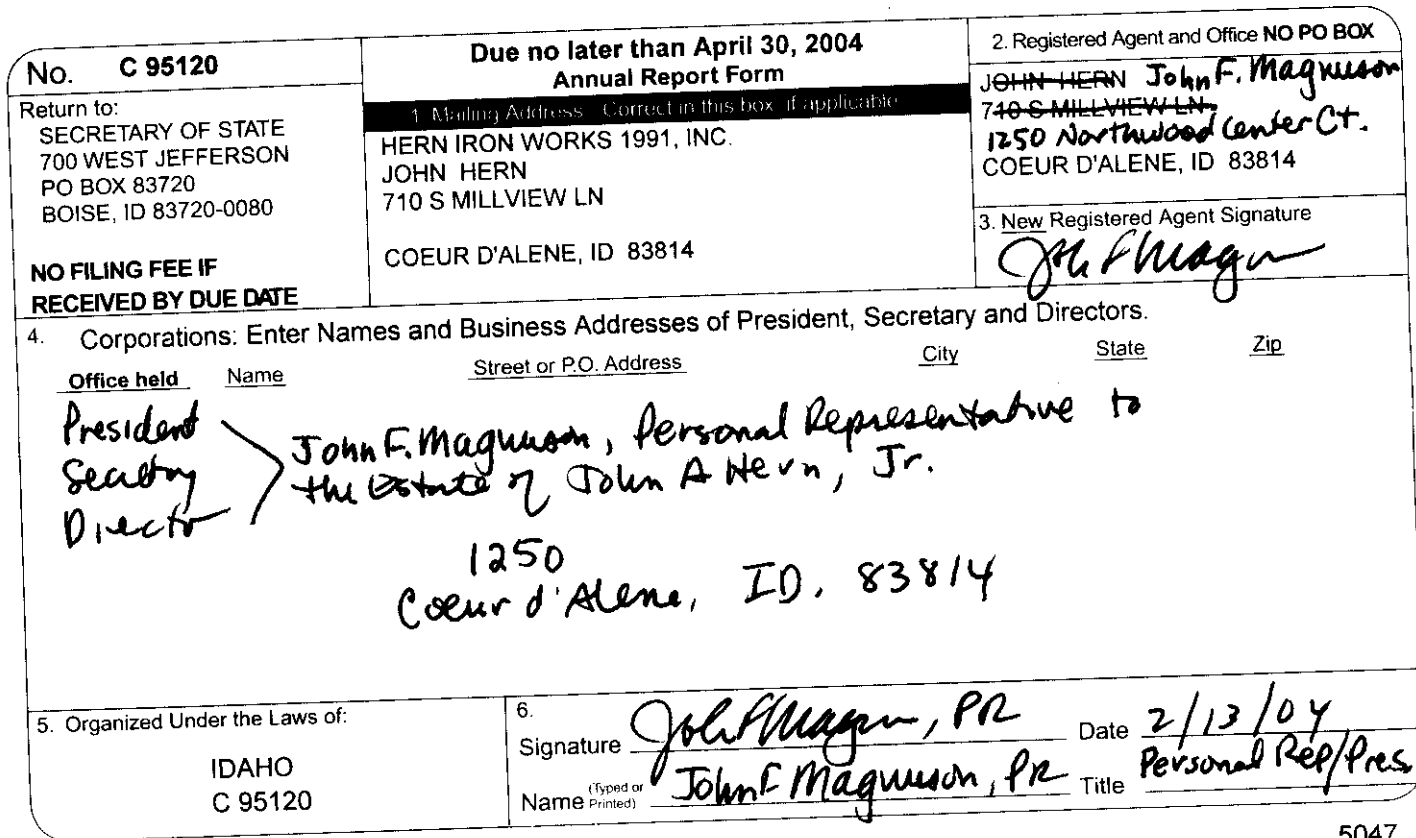 No. C 95120
Return to:
SECRETARY OF STATE
700 WEST JEFFERSON
PO BOX 83720
BOISE, ID 83720-0080
NO FILING FEE IF
RECEIVED BY DUE DATE
Due no later than April 30, 2004
Annual Report Form
1. Mailing Address. Correct in this box, if applicable
HERN IRON WORKS 1991, INC.
JOHN HERN
710 S MILLVIEW LN
COEUR D'ALENE, ID 83814
2. Registered Agent and Office NO PO BOX
JOHN HERN John F. Magnuson
710 S MILLVIEW LN
1250 Northwood Center Ct.
COEUR D'ALENE, ID 83814
3. New Registered Agent Signature
John F Magnuson
4. Corporations: Enter Names and Business Addresses of President, Secretary and Directors.
Office held Name Street or P.O. Address City State Zip
President
Secretary
Director
John F. Magnuson, Personal Representative to
the Estate of John A Hern, Jr.
1250
Coeur d'Alene, ID. 83814
5. Organized Under the Laws of:
IDAHO
C 95120
6.
Signature John F Magnuson, PR Date 2/13/04
Name (Typed or Printed) John F Magnuson, PR Title Personal Rep/Pres
5047